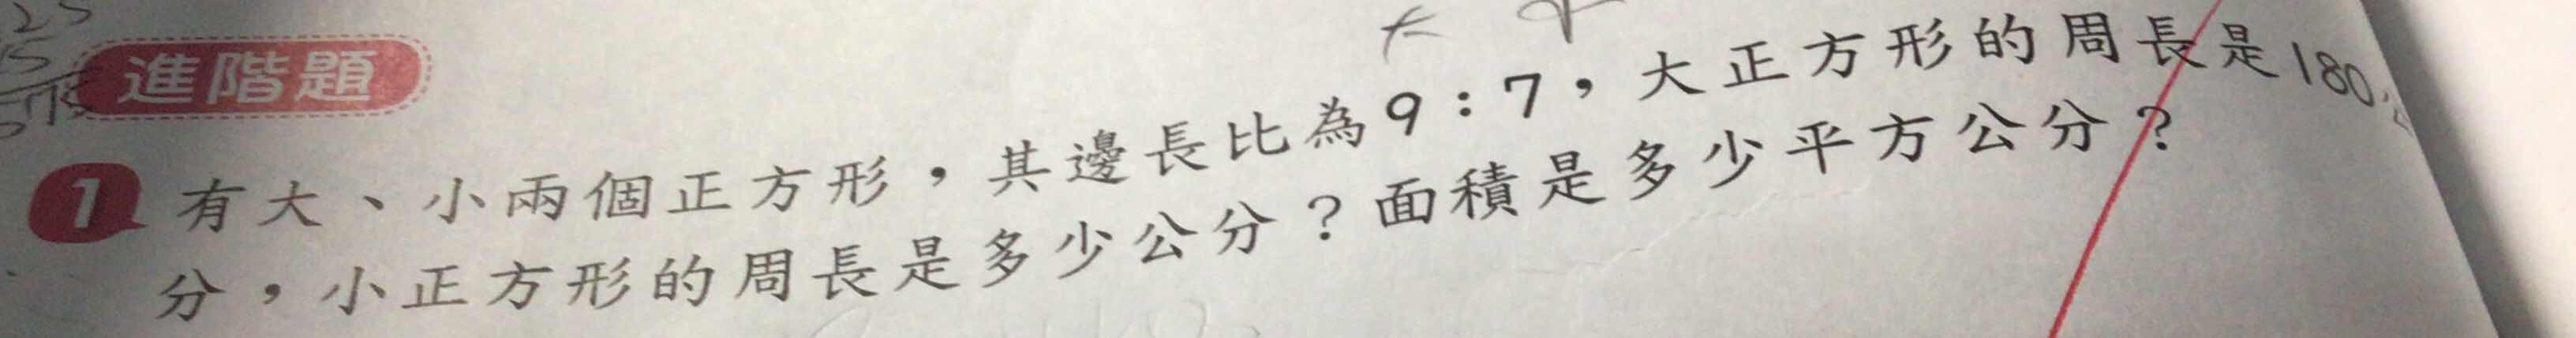 進階題
大 小
1 有大、小兩個正方形，其邊長比為9：7，大正方形的周長是180
分，小正方形的周長是多少公分？面積是多少平方公分？